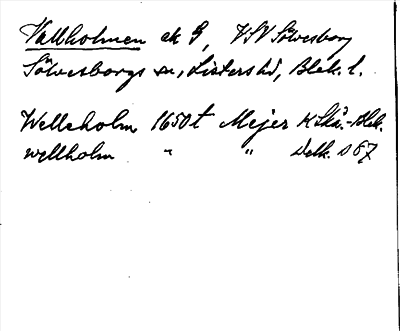 Vallholmen ek 9, VSV Sölvesborg
Sölvesborgs sn, Listers hd, Blek. l.
Welleholm 1650t Mejer K Skå.-Blek.
wellholm " " Delk. D 67